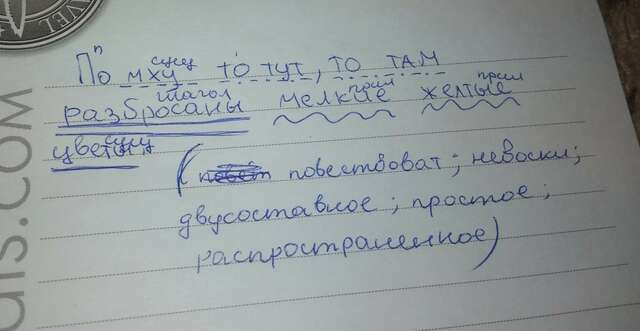 п сущ
По мху то тут, то там
глагол прил прил
разбросаны мелкие желтые
сущ
цветы.
( повествоват; невоскл;
двусоставное; простое;
распространенное)
ais.com
AVEL